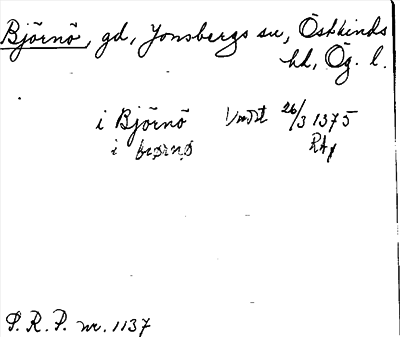 Björnö, gd, Jonsbergs sn, Östkinds
hd, Ög. l.
i Björnö 26/3 1375
i biørnø RAp
S. R. P. nr. 1137